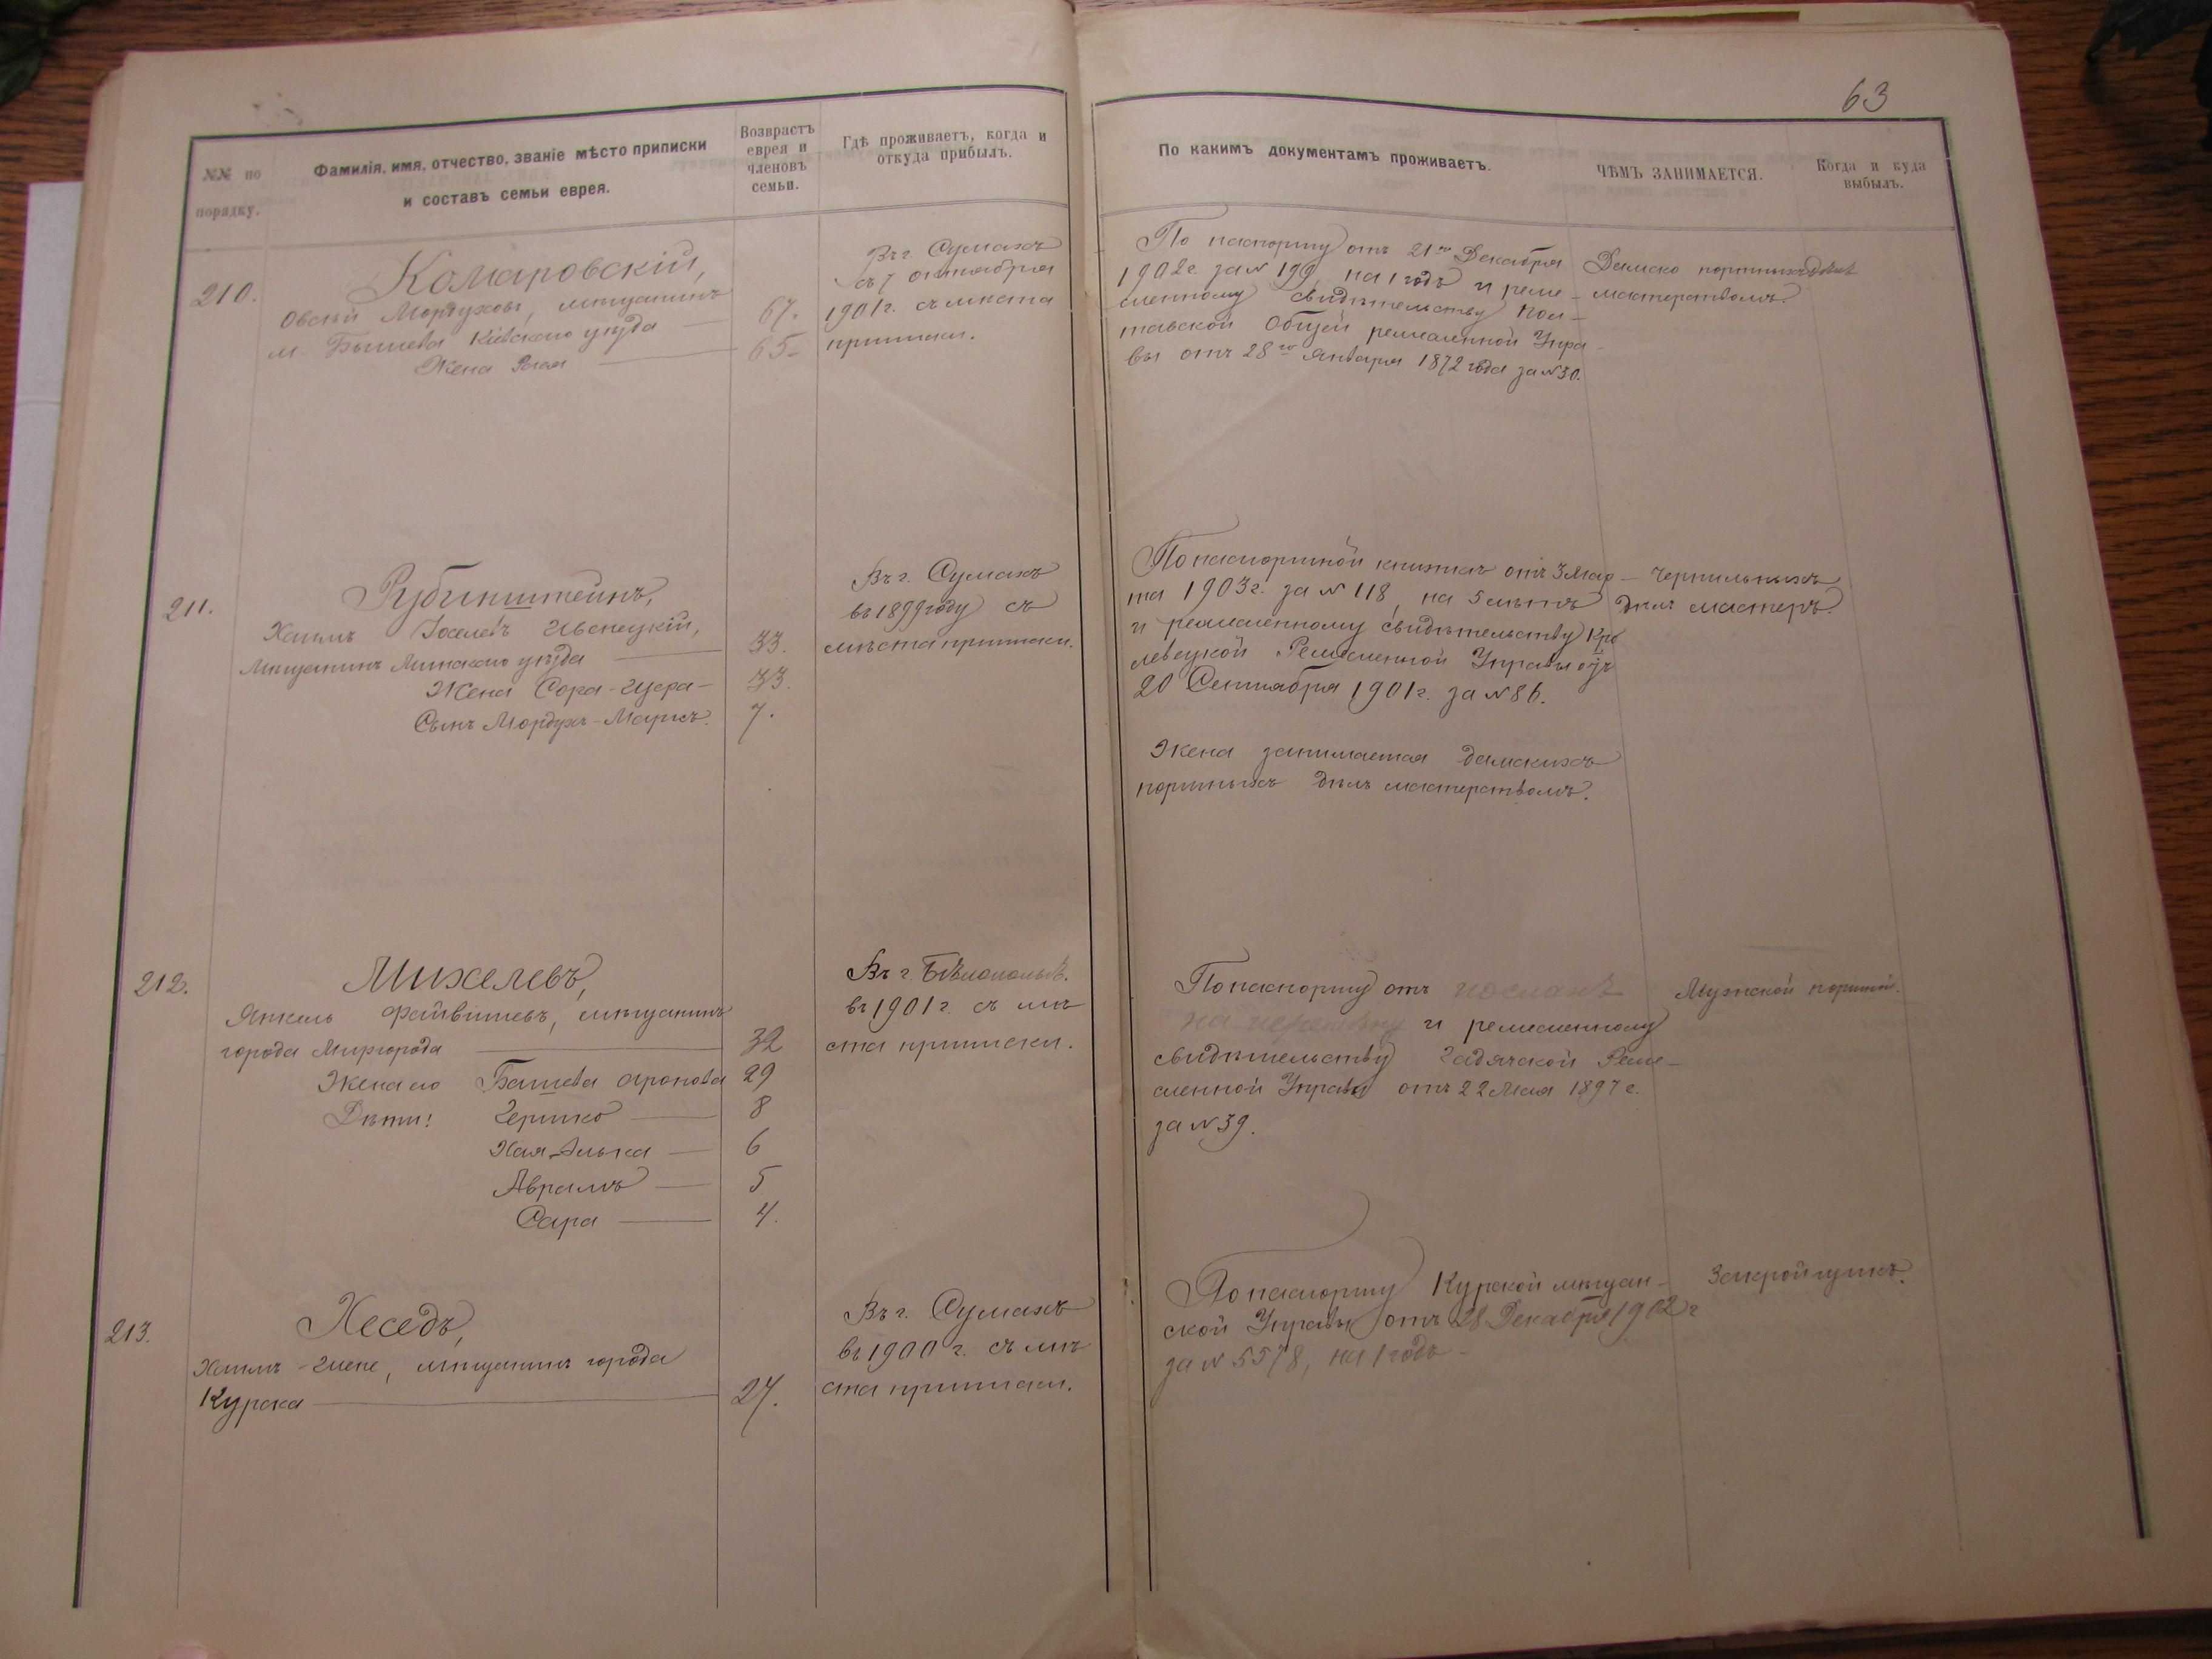 63
№№ по порядку.
Фамилія, имя, отчество, званіе мѣсто приписки
и составъ семьи еврея.
Возврастъ
еврея и
членовъ
семьи.
Гдѣ проживаетъ, когда и
откуда прибылъ.
По какимъ документамъ проживаетъ.
ЧѢМЪ ЗАНИМАЕТСЯ.
Когда и куда
выбылъ.
210.
Комаровскій,
Овсѣй Мордуховъ, мѣщанинъ
м. Бышева Кіевскаго уѣзда — 67.
Жена — 65
Въ г. Сумахъ
съ 7 октября
1901 г. съ мѣста
приписки.
По паспорту отъ 21го Декабря
1902 г. за № 199, на 1 годъ и реме-
сленному свидѣтельству Пол-
тавской Общей ремесленной Упра-
вы отъ 28го Января 1872 года за № 30.
Дамско портныхъ дѣлъ
мастерствомъ.
211.
Рубинштейнъ,
Хаимъ Іоселевъ Ивенецкій,
мѣщанинъ Минскаго уѣзда — 33.
Жена Сора- — 33.
Сынъ Мордухъ-Марисъ. 7.
Въ г. Сумахъ
въ 1899 году съ
мѣста приписки.
По паспортной книжкѣ отъ 3 Мар-
та 1903 г. за № 118, на 5 лѣтъ
и ремесленному свидѣтельству Кро
левецкой Ремесленной Управы отъ
20 Сентября 1901 г. за № 86.
Жена занимается дамскихъ
портныхъ дѣлъ мастерствомъ.
Чернильныхъ
дѣлъ мастеръ.
212.
Михелевъ,
Янкель Файвишевъ, мѣщанинъ
города Миргорода — 32
Жена его Башева Аронова 29
Дѣти: Гершко — 8
Хая-Элька — 6
Аврамъ — 5
Сара — 4.
Въ г. Бѣлопольѣ.
въ 1901 г. съ мѣ
ста приписки.
По паспорту отъ посланъ
на перемѣну и ремесленному
свидѣтельству Гадячской Реме-
сленной Управы отъ 22 Мая 1897 г.
за № 39.
Мужской портной.
213.
Хеседъ,
Хаимъ - , мѣщанинъ города
Курска — 27.
Въ г. Сумахъ
въ 1900 г. съ мѣ
ста приписки.
По паспорту Курской мѣщан-
ской Управы отъ 28 Декабря 1902 г
за № 5578, на 1 годъ -
Закройщикъ.